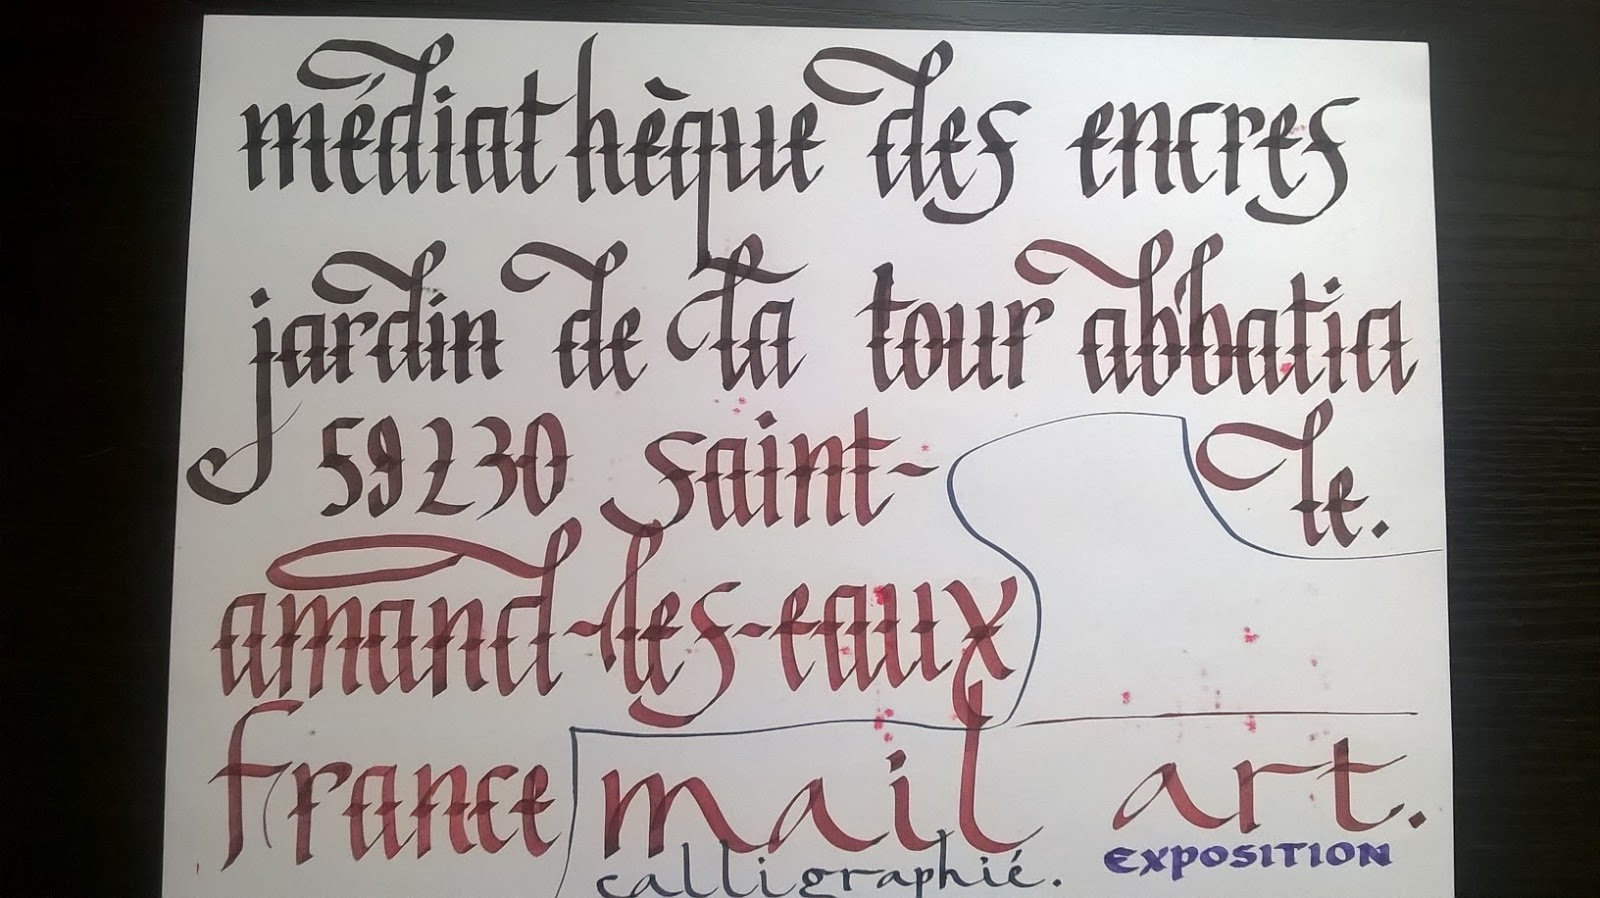 médiathèque des encres
jardin de la tour abbatia
le.
59230 saint-
amand-les-eaux
france
mail art.
calligraphié.
EXPOSITION